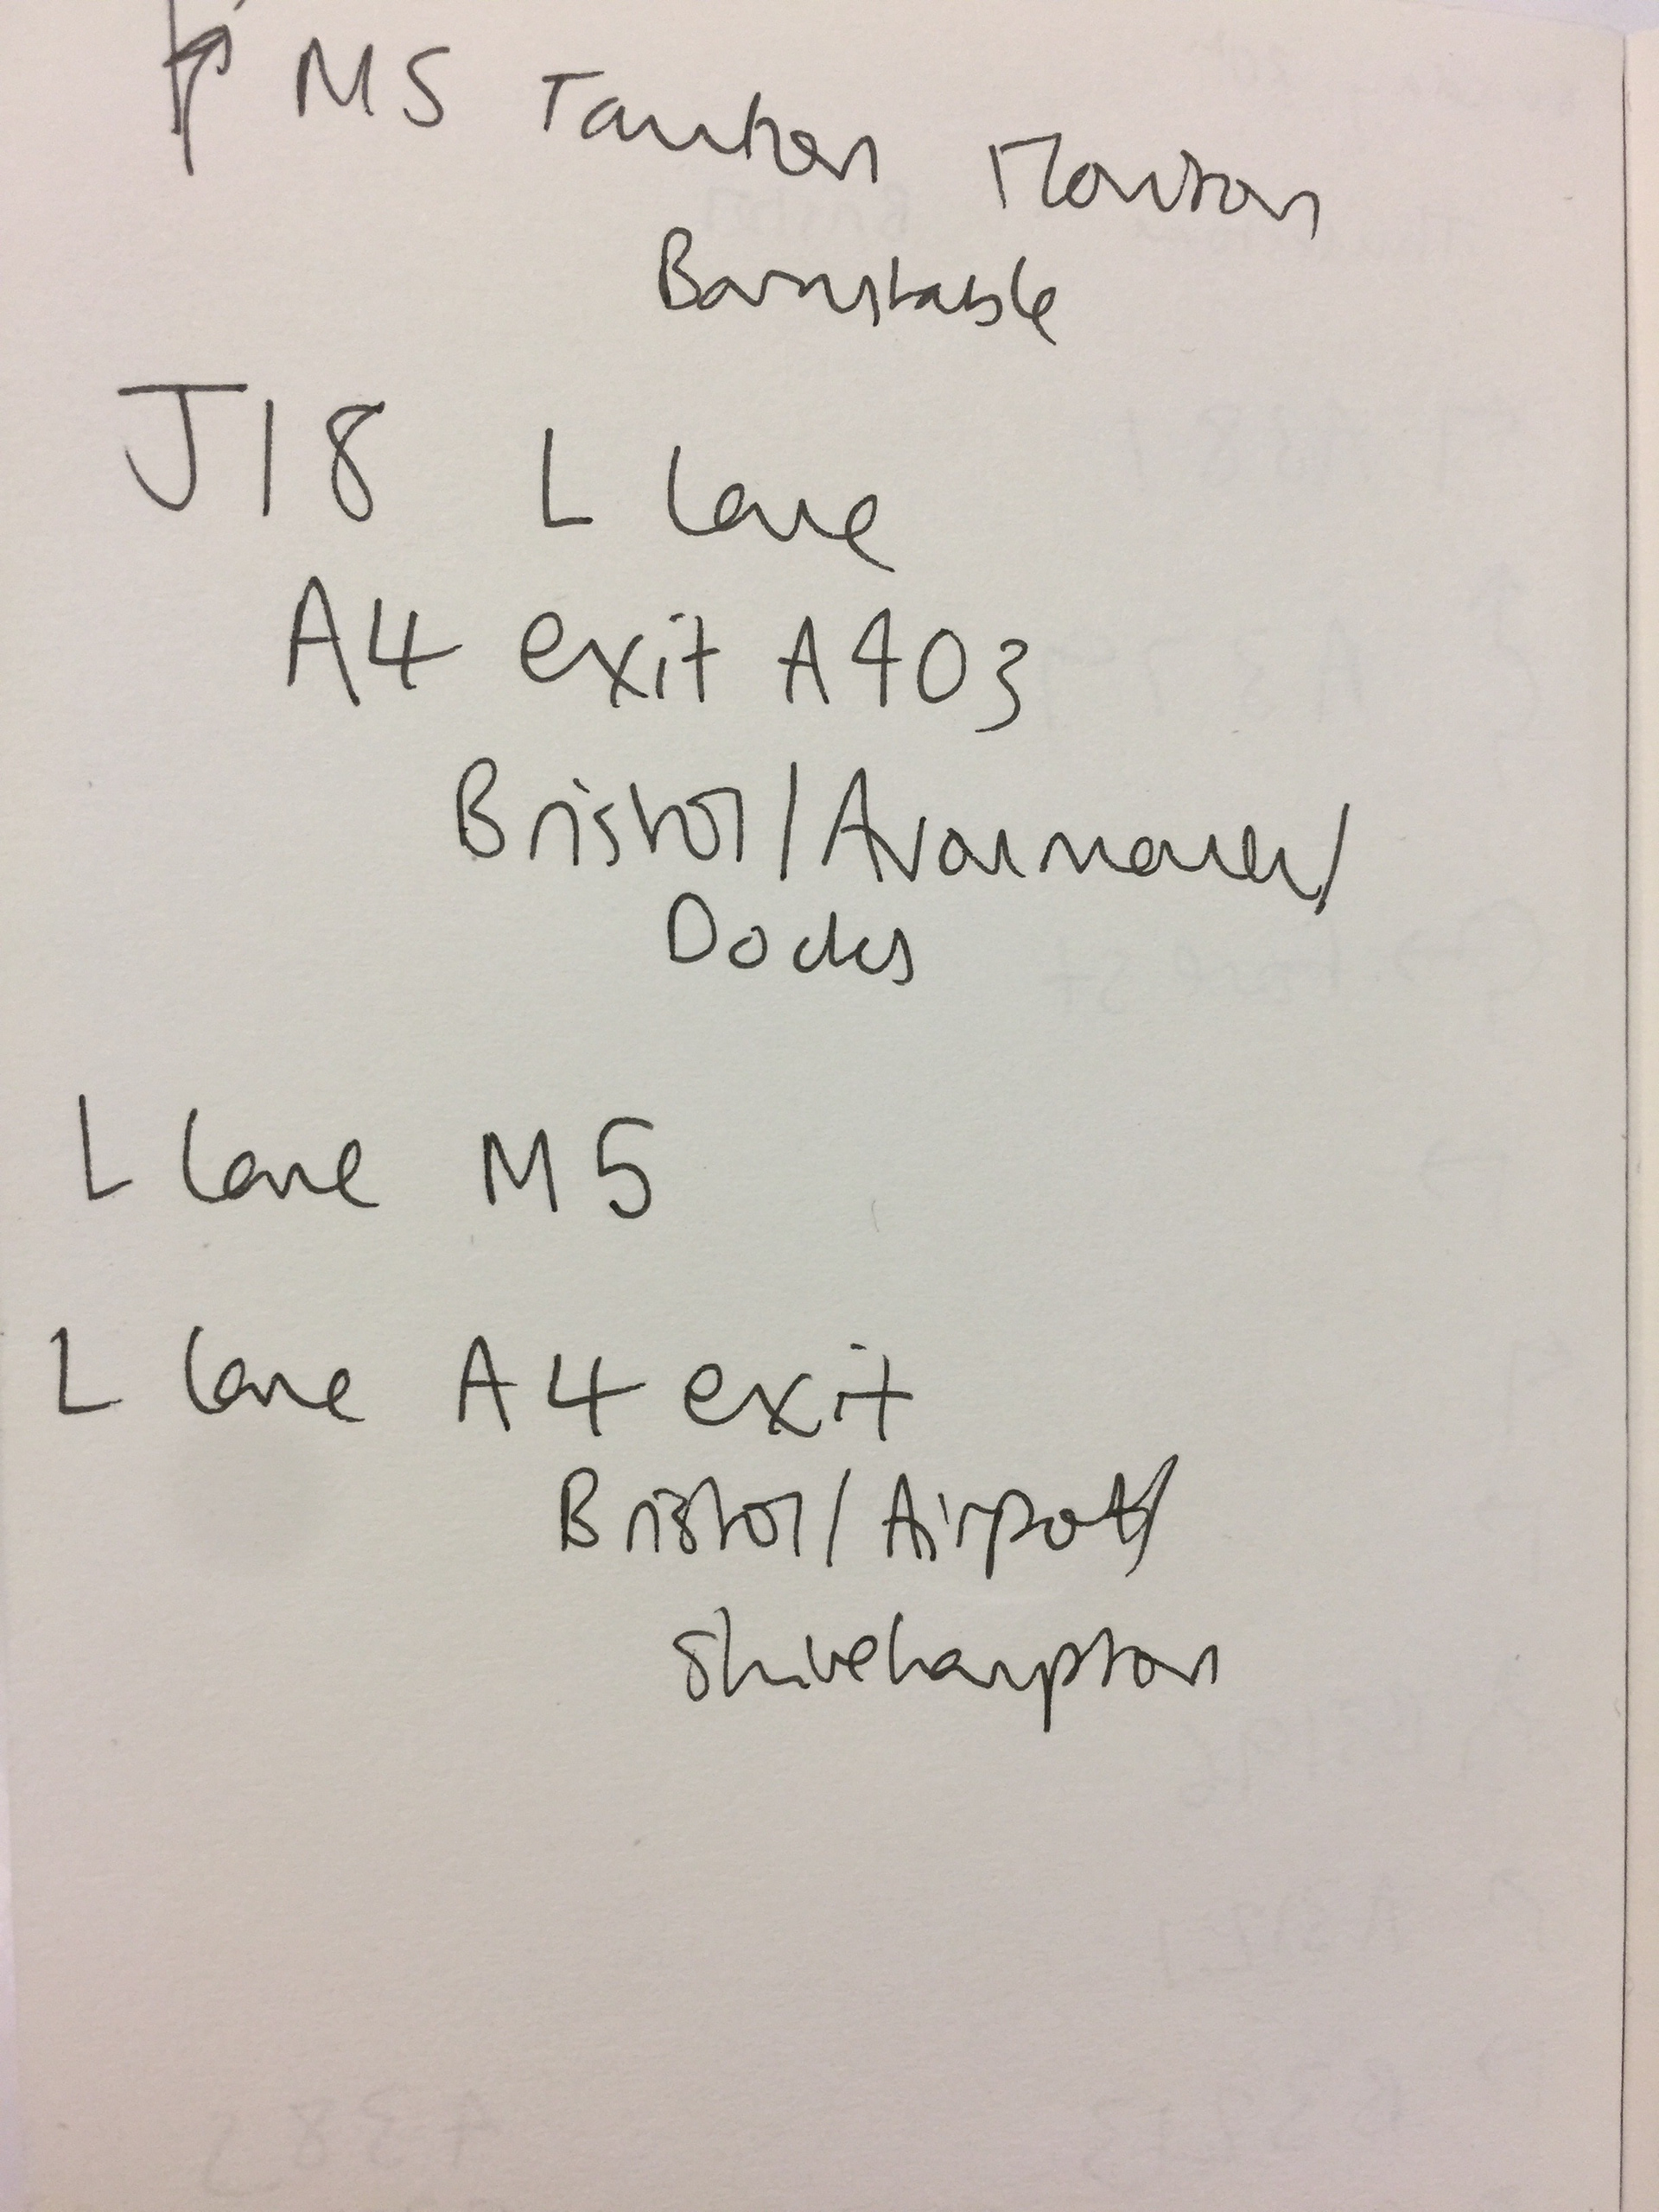 ↱ M5 Taunton Honiton
Barnstable
J18 L lane
A4 exit A403
Bristol/Avonmouth/
Docks
L lane M5
L lane A4 exit
Bristol/Airport/
Shirehampton